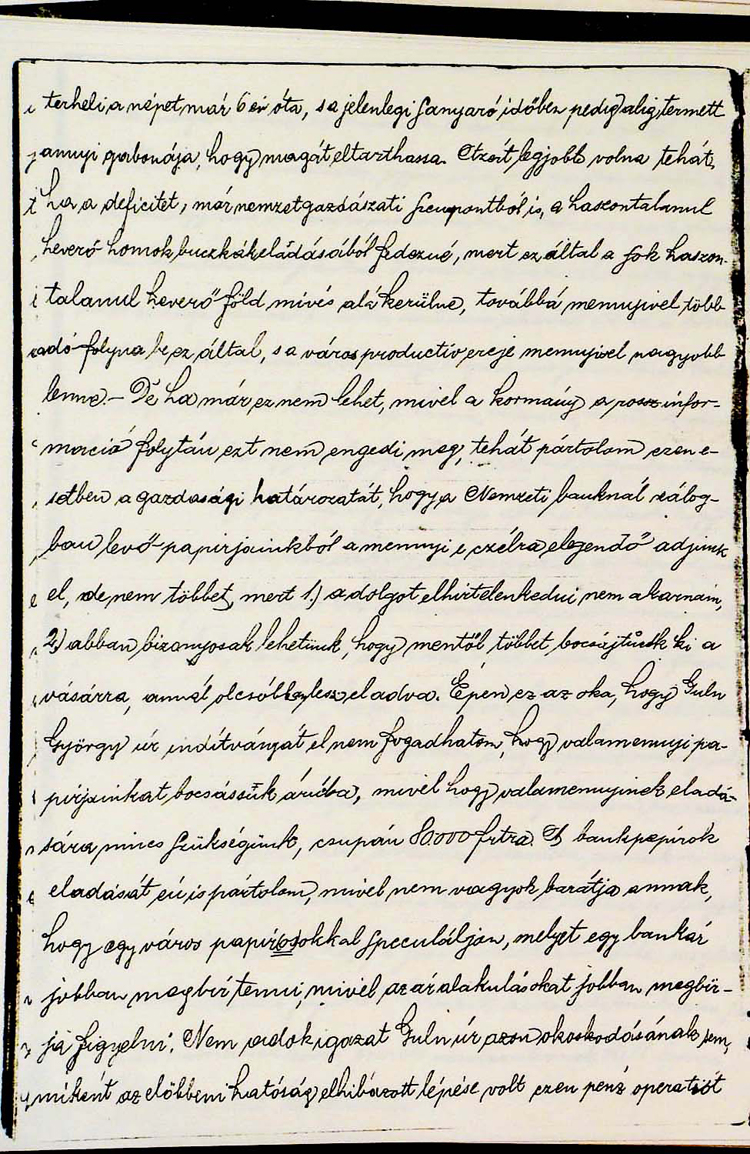 terheli a népet már 6 év óta, s a jelenlegi sanyaró időben pedig alig termett
annyi gabonája, hogy magát eltarthassa. Azért legjobb volna tehát,
ha a deficitet, már nemzetgazdászati szempontból is, a haszontalanul
heverő homokbuczkák eladásából fedezné, mert ez által a sok haszon-
talanul heverő föld mivés alá kerülne, továbbá mennyivel több
adó folyna be ez által, s a város productiv ereje mennyivel nagyobb
lenne. – De ha már ez nem lehet, mivel a kormány a rossz infor-
matió folytán ezt nem engedi meg, tehát pártolom ezen e-
setben a gazdasági határozatát, hogy a Nemzeti banknál zálog-
ban levő papirjainkból a mennyi e czélra elegendő adjunk
el, de nem többet, mert 1.) a dolgot elhirtelenkedni nem akarnám,
2.) abban bizonyosak lehetünk, hogy mentől többet bocsájtunk ki a
vásárra, annál olcsóbb lesz eladva. Épen ez az oka, hogy Guln
György úr indítványát el nem fogadhatom, hogy valamennyi pa-
pirjainkat bocsássuk áruba, mivel hogy valamennyinek eladá-
sára nincs szükségünk, csupán 80.000 frtra. A bankpapírok
eladását én is pártolom, mivel nem vagyok barátja annak,
hogy egy város papirosokkal speculáljon, melyet egy bankár
jobban megbir tenni, mivel az ár alakulásokat jobban megbir-
ja figyelni. Nem adok igazat Guln úr azon okoskodásának sem,
miként az előbbeni hatóság elhibázott lépése volt ezen pénz operatiót